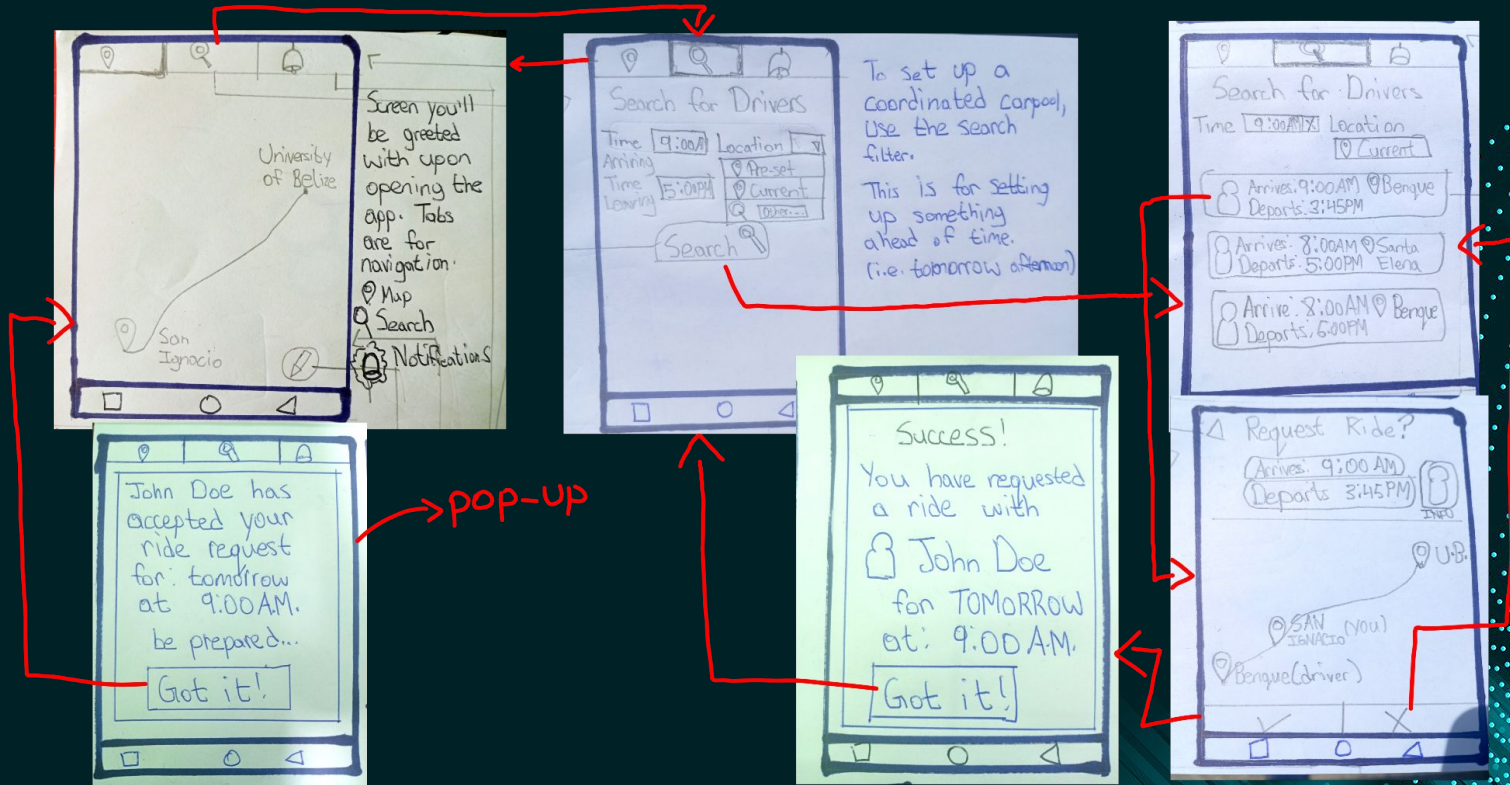 University
of Belize
San
Ignacio
Screen you'll
be greeted
with upon
opening the
app. Tabs
are for
navigation.
Map
Search
Notifications
Search for Drivers
Time 9:00A Location
Arriving
Time 5:00PM
Leaving
Pre-set
Current
Other...
Search
To set up a
coordinated carpool,
use the search
filter.
This is for setting
up something
ahead of time.
(i.e. tomorrow afternoon)
Search for Drivers
Time 9:00AM X Location
Current
Arrives: 9:00AM Benque
Departs: 3:45PM
Arrives: 8:00AM Santa
Departs: 5:00PM Elena
Arrive: 8:00AM Benque
Departs: 6:00PM
John Doe has
accepted your
ride request
for: tomorrow
at 9:00A.M.
be prepared...
Got it!
pop-up
Success!
You have requested
a ride with
John Doe
for TOMORROW
at: 9:00 A.M.
Got it!
Request Ride?
Arrives: 9:00 AM
Departs 3:45PM
INFO
U.B.
SAN (YOU)
IGNACIO
Benque(driver)